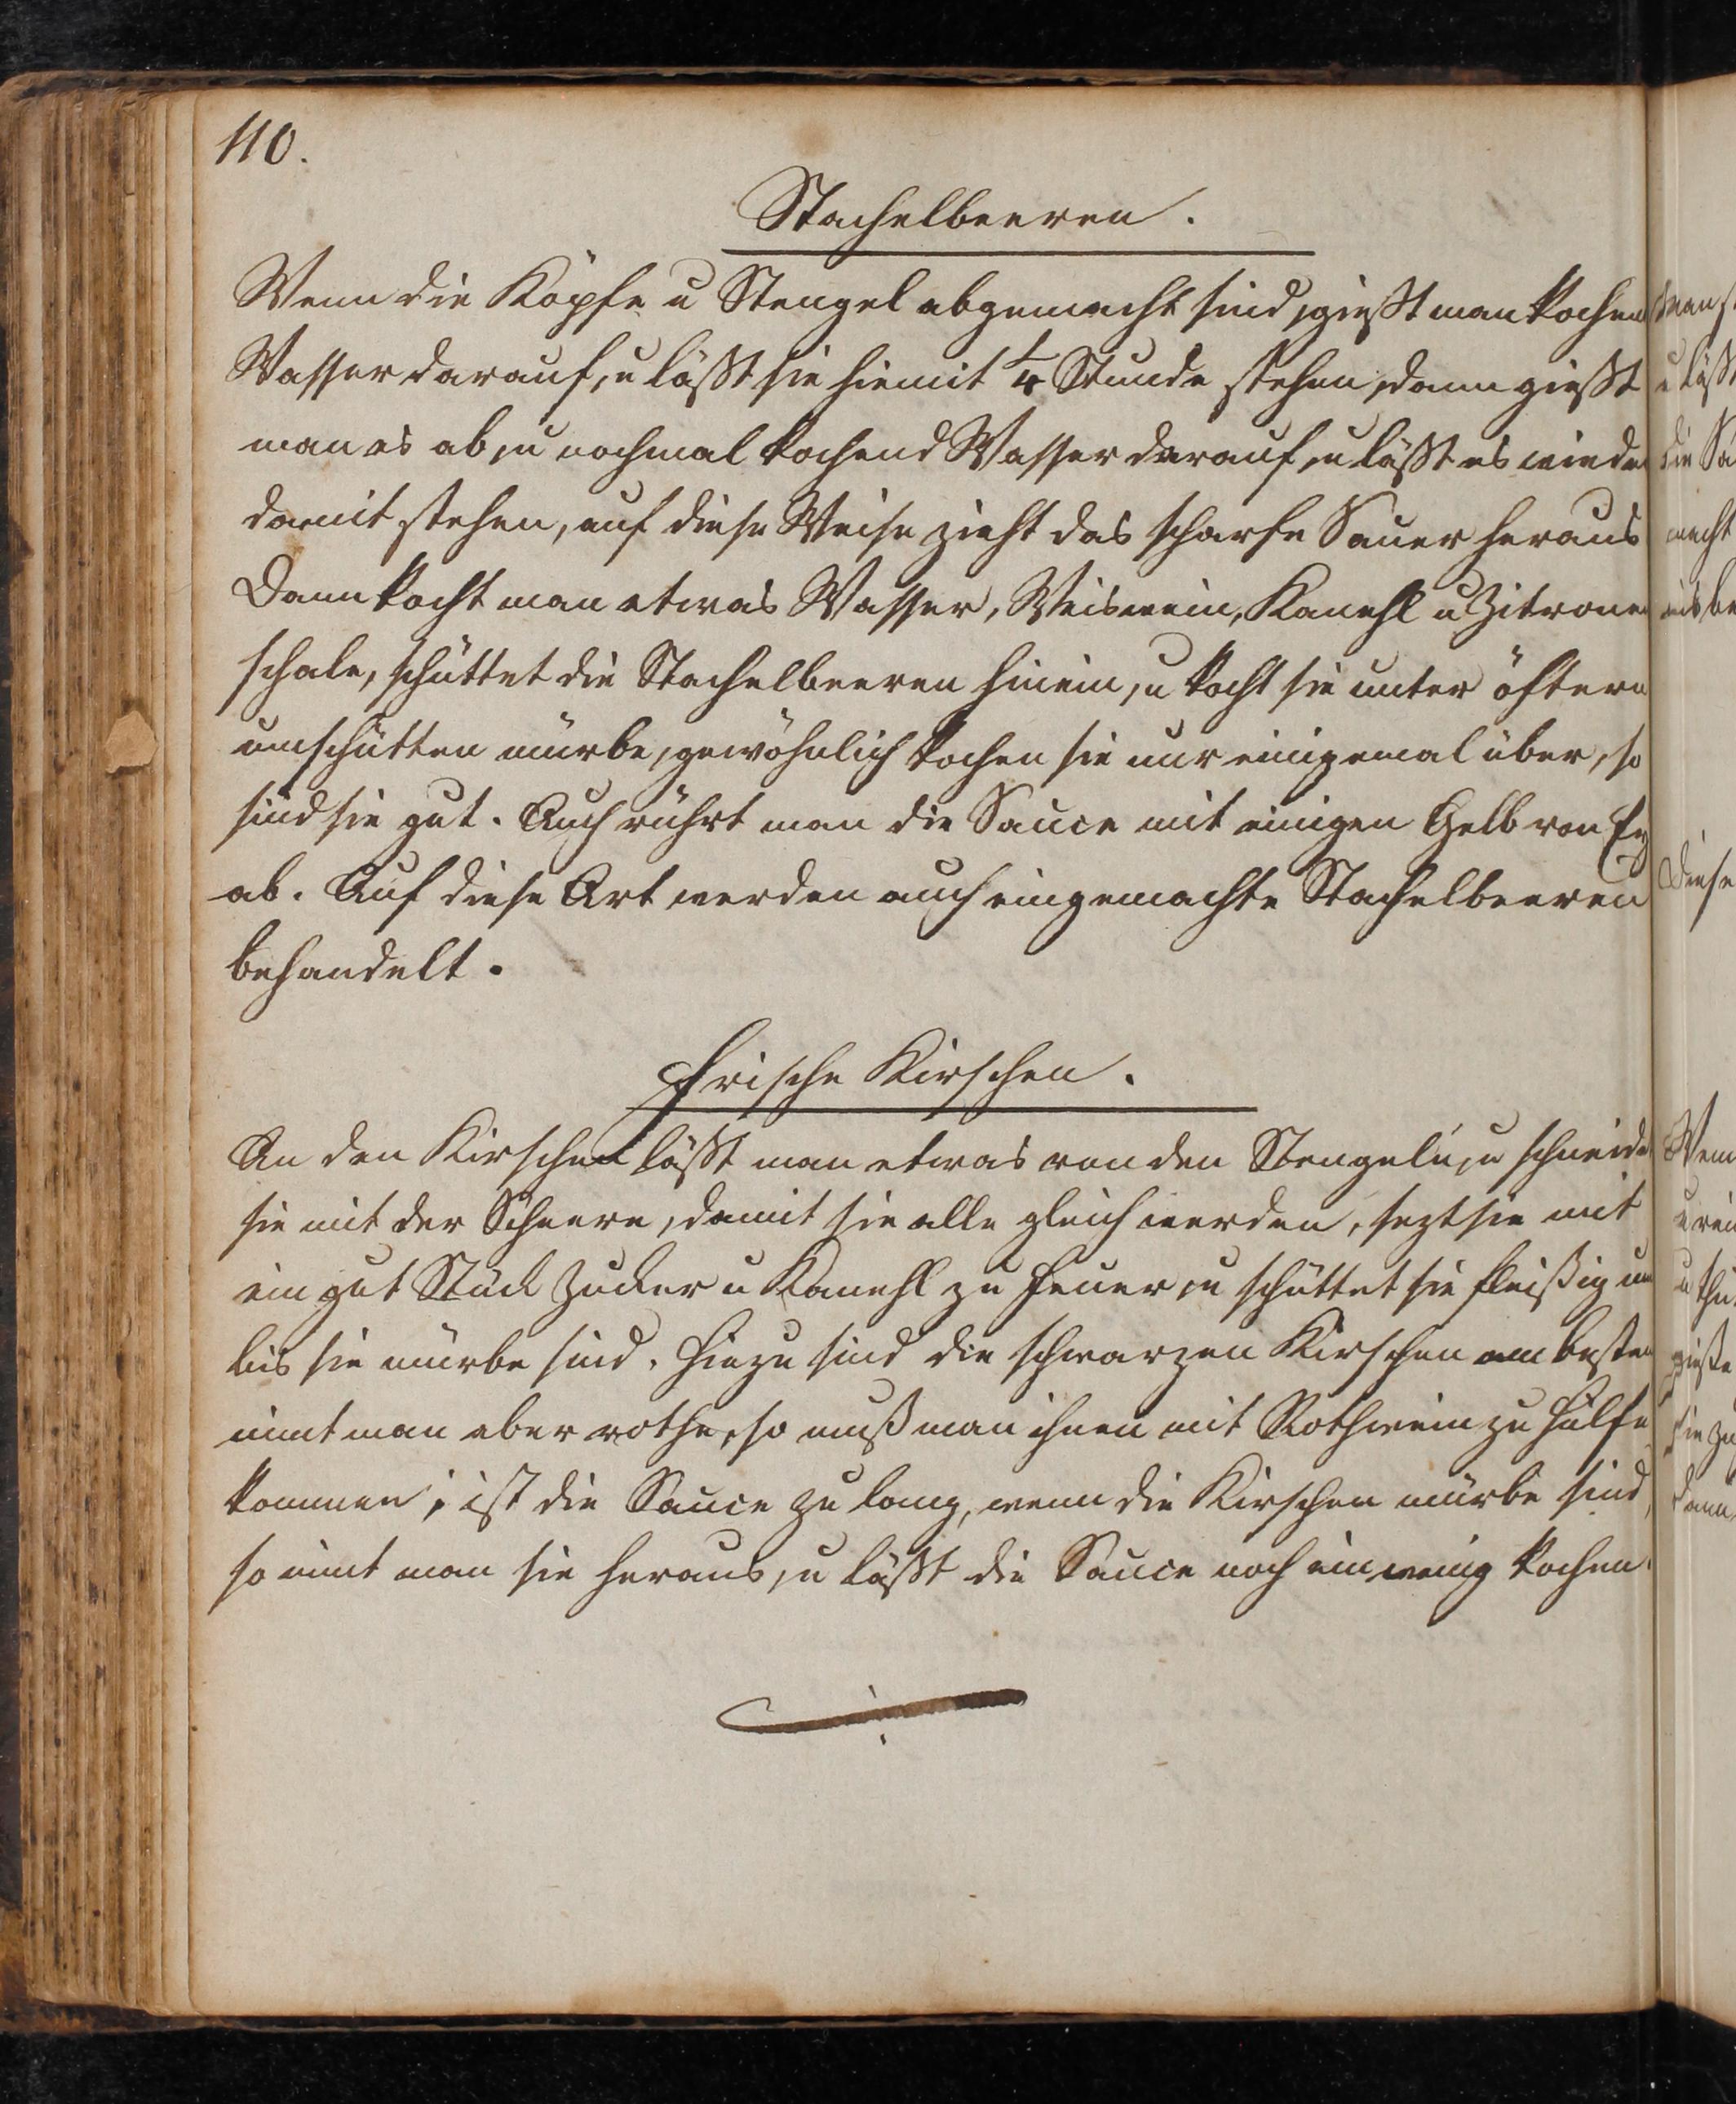 110.
Stachelbeeren.
Wenn die Köpfe u Stengel abgemacht sind, gießt man kochend
Wasser darauf, u läßt sie hiemit 1/4 Stunde stehen, dann gießt
man es ab, u nochmal kochend Wasser darauf, u läßt es wieder
damit stehen, auf diese Weise zieht das scharfe Sauer heraus
Dann kocht man etwas Wasser, Weiswein, Kanehl u Zitronen
schale, schüttet die Stachelbeeren hinein, u kocht sie unter öftern
umschütten mürbe, gewöhnlich kochen sie nur einigemal über, so
sind sie gut. Auch rührt man die Sauce mit einigen Gelb von Ey
ab. Auf diese Art werden auch eingemachte Stachelbeeren
behandelt.
Frische Kirschen.
An den Kirschen läßt man etwas von den Stengeln, u schneidet
sie mit der Scheere, damit sie alle gleich werden, sezt sie mit
ein gut Stück Zucker u Kanehl zu Feuer, u schüttet sie fleißig um
bis sie mürbe sind. Hiezu sind die schwarzen Kirschen am besten
nimt man aber rothe, so muß man ihnen mit Rothwein zu Hülfe
kommen; ist die Sauce zu lang, wenn die Kirschen mürbe sind,
so nimt man sie heraus, u läßt die Sauce noch ein wenig kochen.